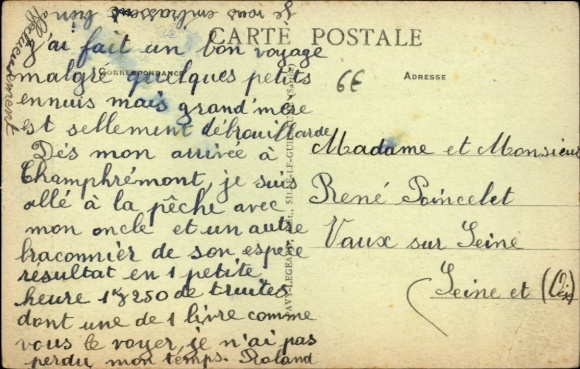 CARTE POSTALE
CORRESPONDANCE
ADRESSE
J'ai fait un bon voyage
malgré quelques petits
ennuis mais grand'mère
est sellement débrouillarde
Dès mon arrivée à
Champhrémont, je suis
allé à la pêche avec
mon oncle et un autre
braconnier de son espèce
résultat en 1 petite
heure 1kg250 de truites
dont une de 1 livre comme
vous le voyer, je n'ai pas
perdu mon temps. Roland
Je vous embrasse bien
affectueusement
6E
Madame et Monsieur
René Poincelet
Vaux sur Seine
Seine et (Oise)